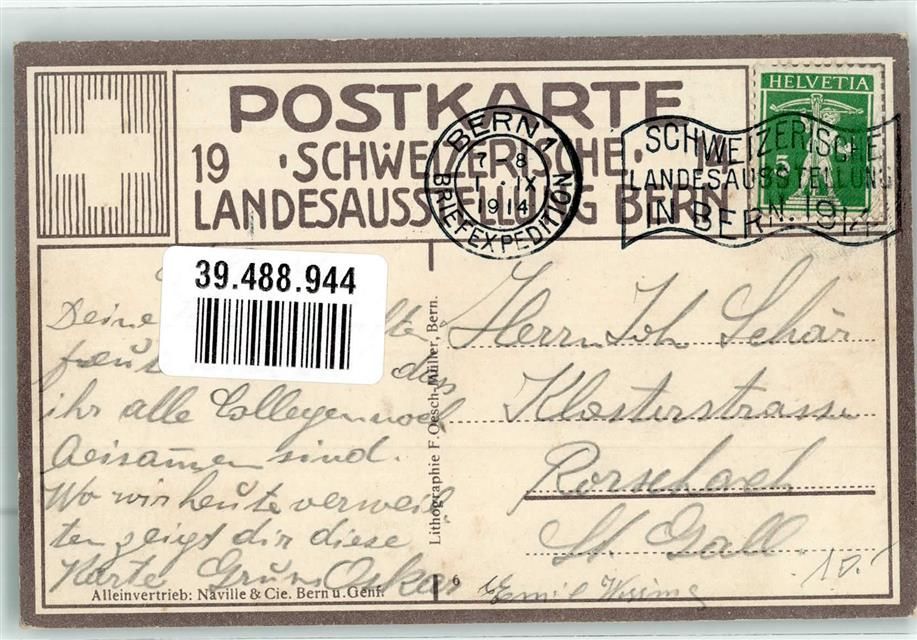 POSTKARTE
19 · SCHWEIZERISCHE · 14
LANDESAUSSTELLUNG BERN
BERN 1
7-8
1. IX
1914
BRIEFEXPEDITION
SCHWEIZERISCHE
LANDESAUSSTELLUNG
IN BERN. 1914
HELVETIA
5
39.488.944
Deine
freut dass
ihr alle Collegen noch
beisammen sind.
Wo wir heute verweil
ten zeigt dir diese
Karte Gruss Oskar
Emil
Alleinvertrieb: Naville & Cie. Bern u. Genf.
Lithographie F. Oesch-Müller, Bern.
6
Herrn Joh Schär
Klosterstrasse
Rorschach
St. Gall.
10.-